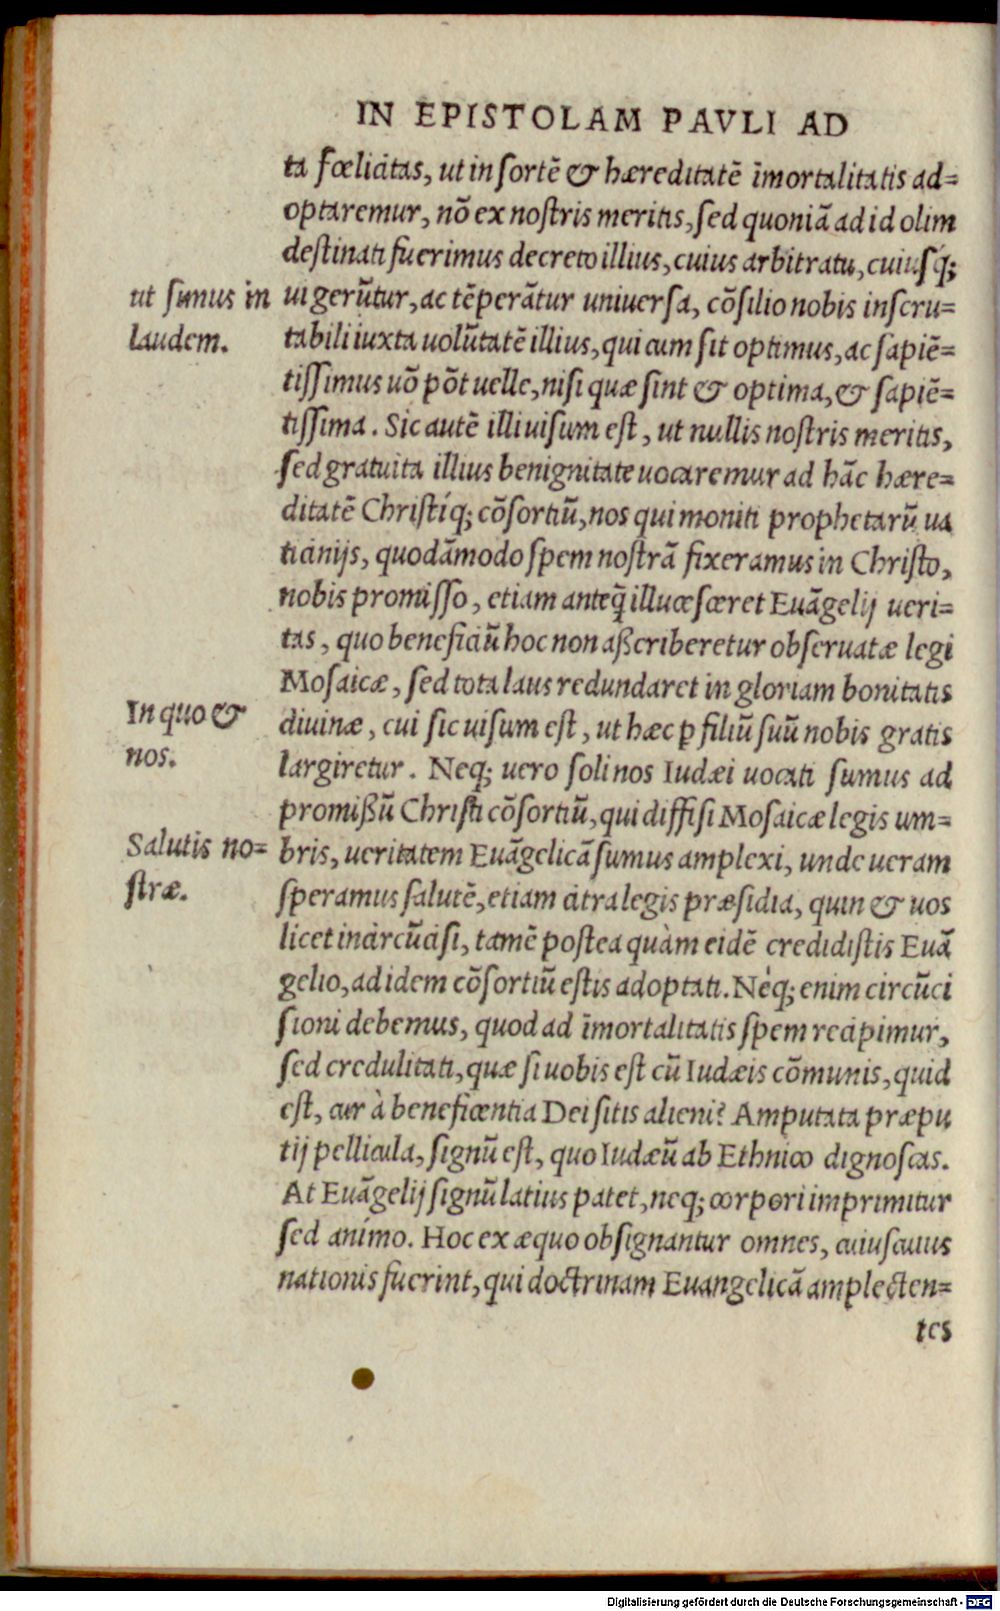 IN EPISTOLAM PAVLI AD
ta fœlicitas, ut in sortē & hæreditatē īmortalitatis ad=
optaremur, nō ex nostris meritis, sed quoniā ad id olim
destinati fuerimus decreto illius, cuius arbitratu, cuiusq́;
ut simus in
laudem.
ui gerūtur, ac tēperātur uniuersa, cōsilio nobis inscru=
tabili iuxta uolūtatē illius, qui cum sit optimus, ac sapiē=
tissimus uō pōt uelle, nisi quæ sint & optima, & sapiē=
tissima. Sic autē illi uisum est, ut nullis nostris meritis,
sed gratuita illius benignitate uocaremur ad hāc hære=
ditatē Christíq; cōsortiū, nos qui moniti prophetarū ua
ticinijs, quodāmodo spem nostrā fixeramus in Christo,
nobis promisso, etiam anteq̄ illucæsceret Euāgelij ueri=
tas, quo beneficiū hoc non aßcriberetur obseruatæ legi
Mosaicæ, sed tota laus redundaret in gloriam bonitatis
In quo &
nos.
diuinæ, cui sic uisum est, ut hæc ꝑ filiū suū nobis gratis
largiretur. Neq; uero soli nos Iudæi uocati sumus ad
promißū Christi cōsortiū, qui diffisi Mosaicæ legis um=
Salutis no=
stræ.
bris, ueritatem Euāgelicā sumus amplexi, unde ueram
speramus salutē, etiam citra legis præsidia, quin & uos
licet incircūcisi, tamē postea quàm eidē credidistis Euā
gelio, ad idem cōsortiū estis adoptati. Néq; enim circūci
sioni debemus, quod ad īmortalitatis spem recipimur,
sed credulitati, quæ si uobis est cū Iudæis cōmunis, quid
est, cur à beneficentia Dei sitis alieni? Amputata præpu
tij pellicula, signū est, quo Iudæū ab Ethnico dignoscas.
At Euāgelij signū latius patet, neq; corpori imprimitur
sed animo. Hoc ex æquo obsignantur omnes, cuiuscuius
nationis fuerint, qui doctrinam Euangelicā amplecten=
tes
Digitalisierung gefördert durch die Deutsche Forschungsgemeinschaft - DFG